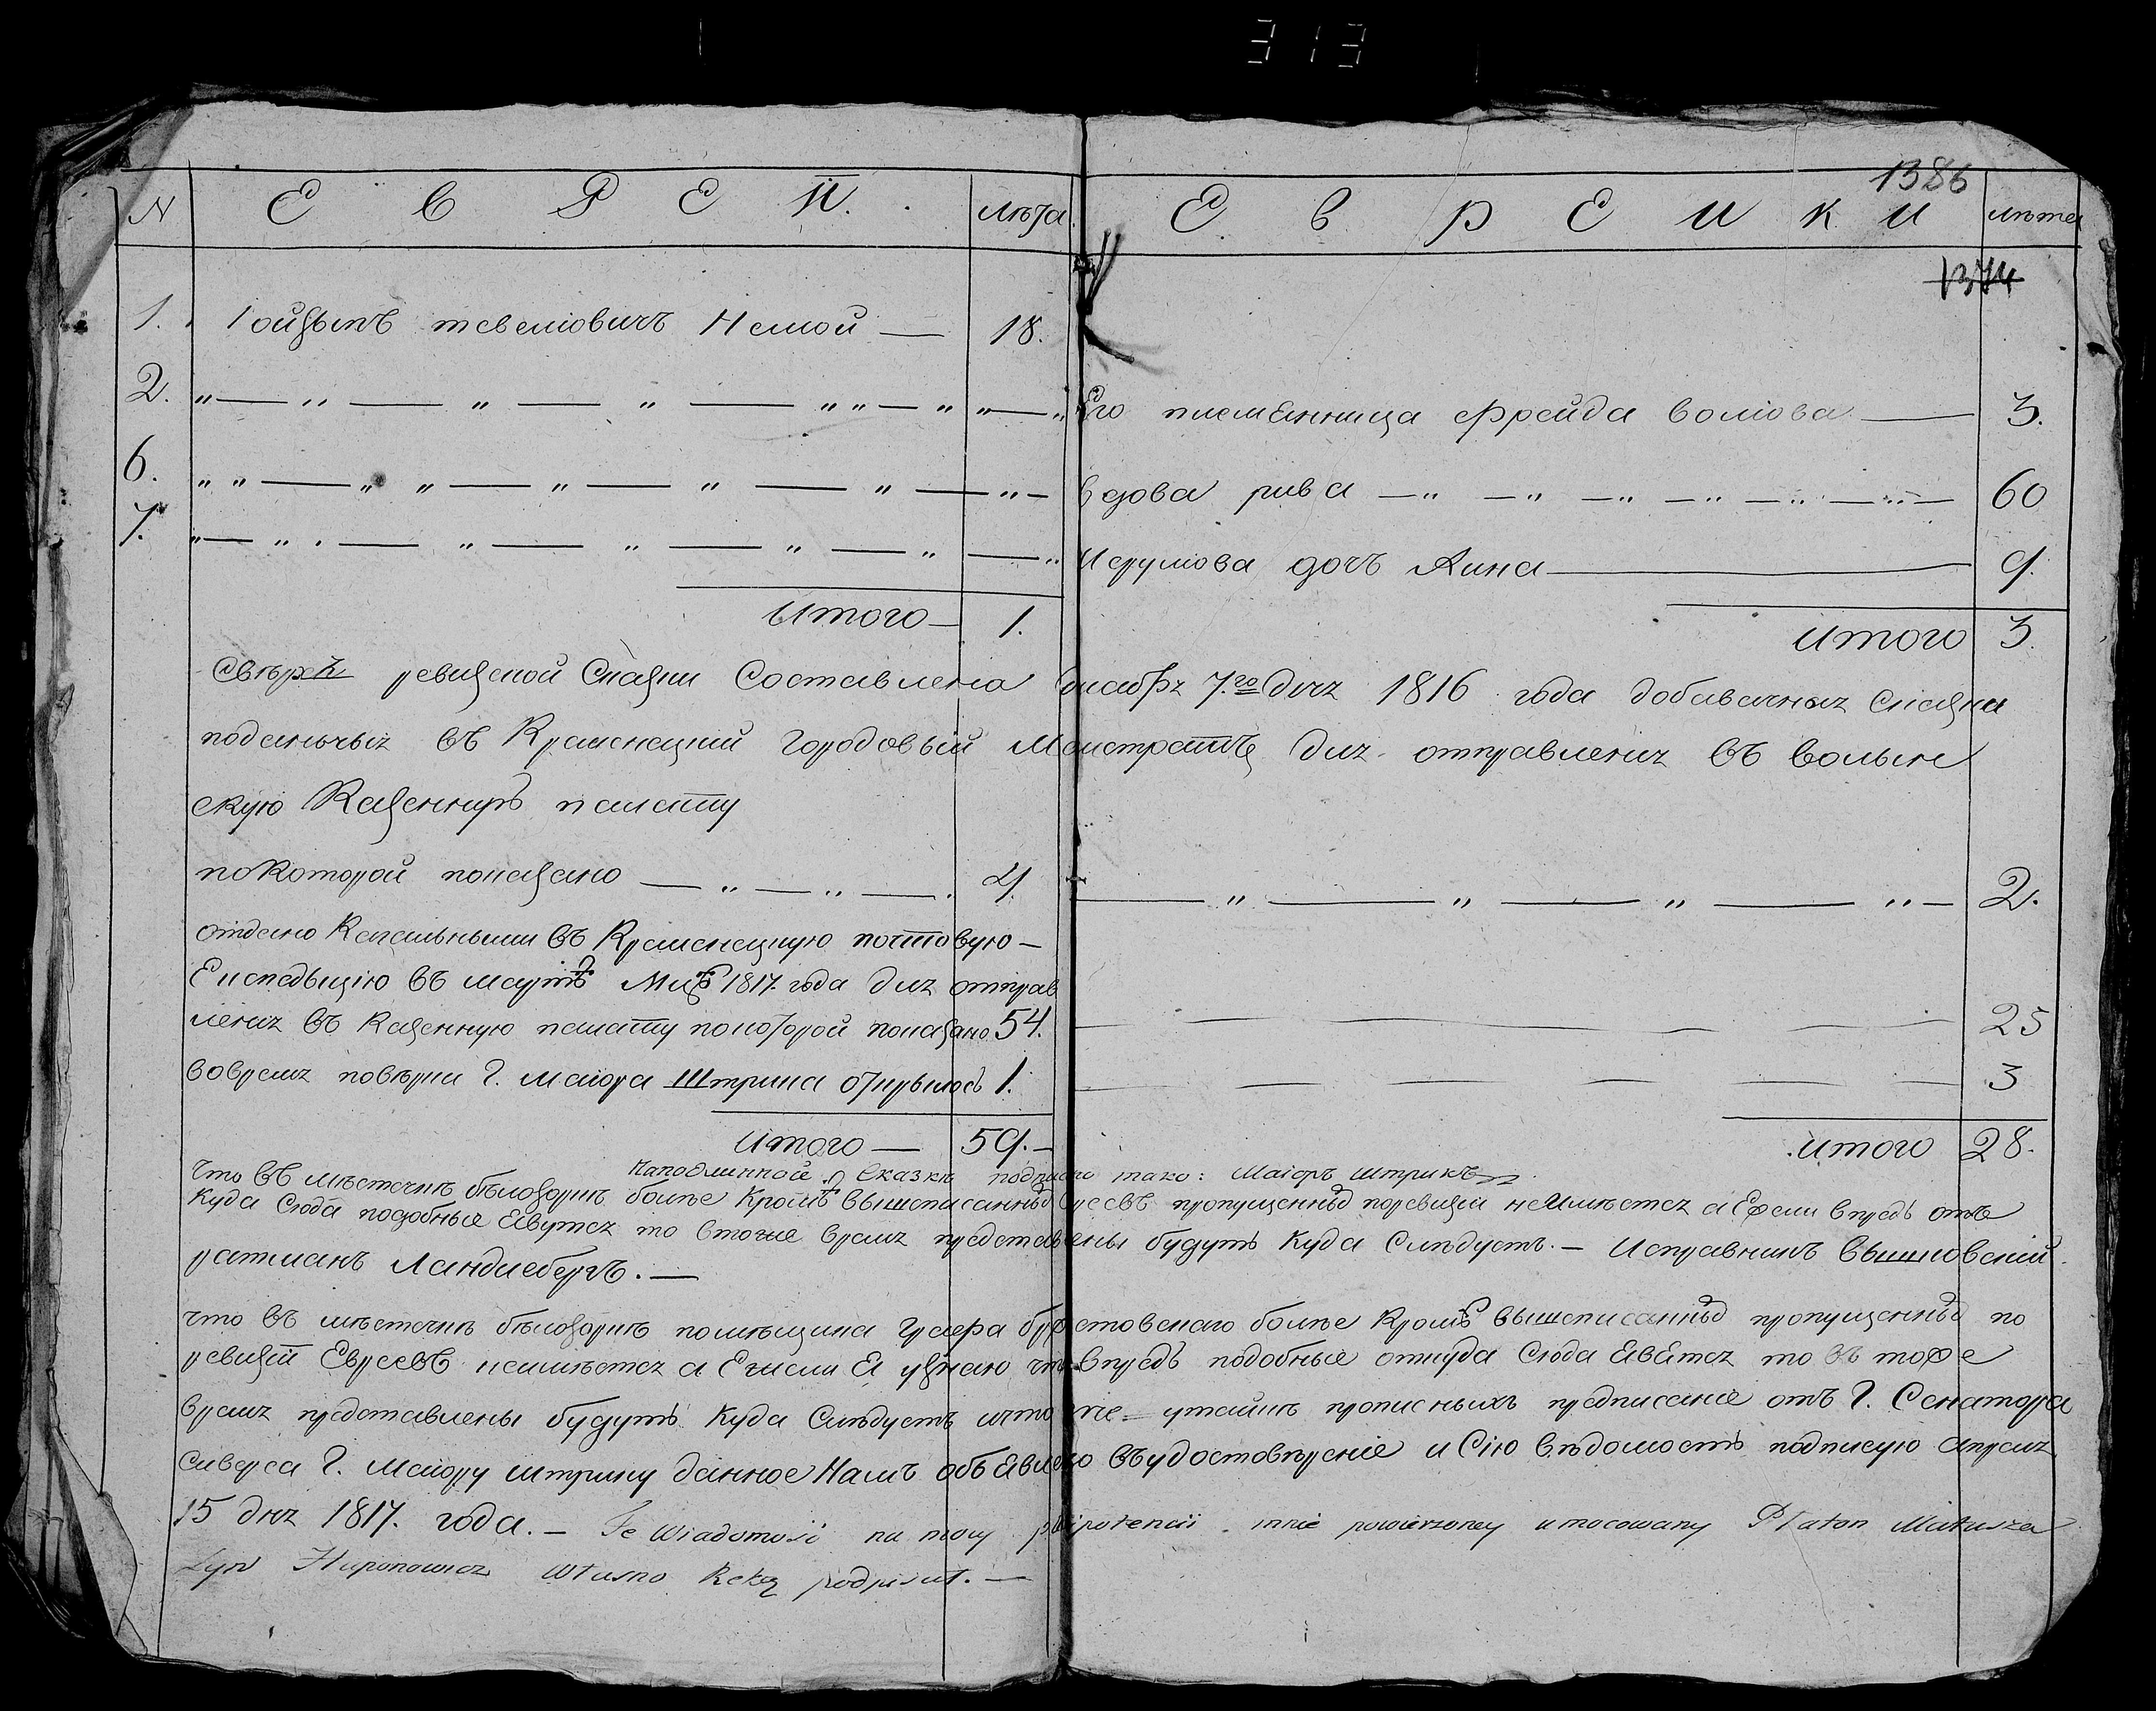 313
1386
N Е В Р Е И. Лѣта Е в р Е и к и лѣта
1374
1. Іойзыпъ тевеліовичъ Немой — 18.
2. Его племЕнница Фрейда воліова — 3.
6. вдова рива 60
7. Исруліова дочъ Анна — 9.
итого — 1. итого 3.
Свѣрхъ ревизской Сказки Составлена декабря 7.го дня 1816 года добавочная Сказка
поданная въ Кременецкий городовый Магистратъ для отправления въ волын
скую Казенную палату
по Которой показано 4. 2.
отдано Кагальными въ Кременецкую почтовую —
Експедыцію въ мартѣ Мцѣ 1817. года для отправ
ления въ Казенную палату по которой показано 54. 25
во время повѣрки Г. маиора Штрика открылось 1. 3
итого — 59. — итого 28.
На подлинной Сказкѣ подписано тако: Маіоръ Штрикъ
что въ мѣстечкѣ бѣлозоркѣ болѣе Кромѣ вышеписанныхъ Евреевъ пропущенныхъ по ревизіи не имѣется а Ежели впредь отъ
Куда Сюда подобные явутся то в тоже время представлены будутъ Куда Слѣдуетъ. — Исправникъ Вышковскій.
ратманъ Ландсбергъ. —
что въ мѣстечкѣ бѣлозоркѣ помѣщика Графа бржостовскаго болѣе Кромѣ вышеписанныхъ пропущенныхъ по
ревизіи Евреевъ не имѣется а Ежели Я узнаю что впредь подобные откуда Сюда явятся то въ тоже
время представлены будутъ Куда Слѣдуетъ и что о не утайкѣ прописныхъ предписаніе отъ Г. Сенатора
Сиверса Г. маиору штрику данное Намъ объявлено въ удостовѣреніе и Сію вѣдомость подписую апреля
15 дня 1817. года. — Te Wiadomość na mocy plenipotencii mnie powierzoney umocowany Platon Matusza
Syn Huponowicz własno Ręką podpisał. —